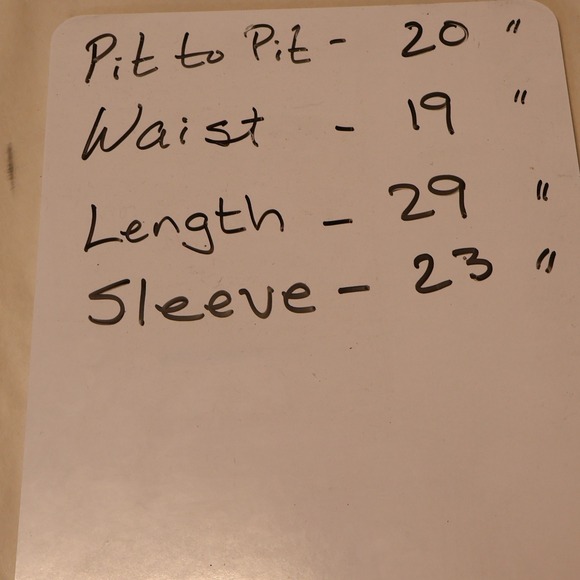 Pit to Pit - 20 "
Waist - 19 "
Length - 29 "
Sleeve - 23 "